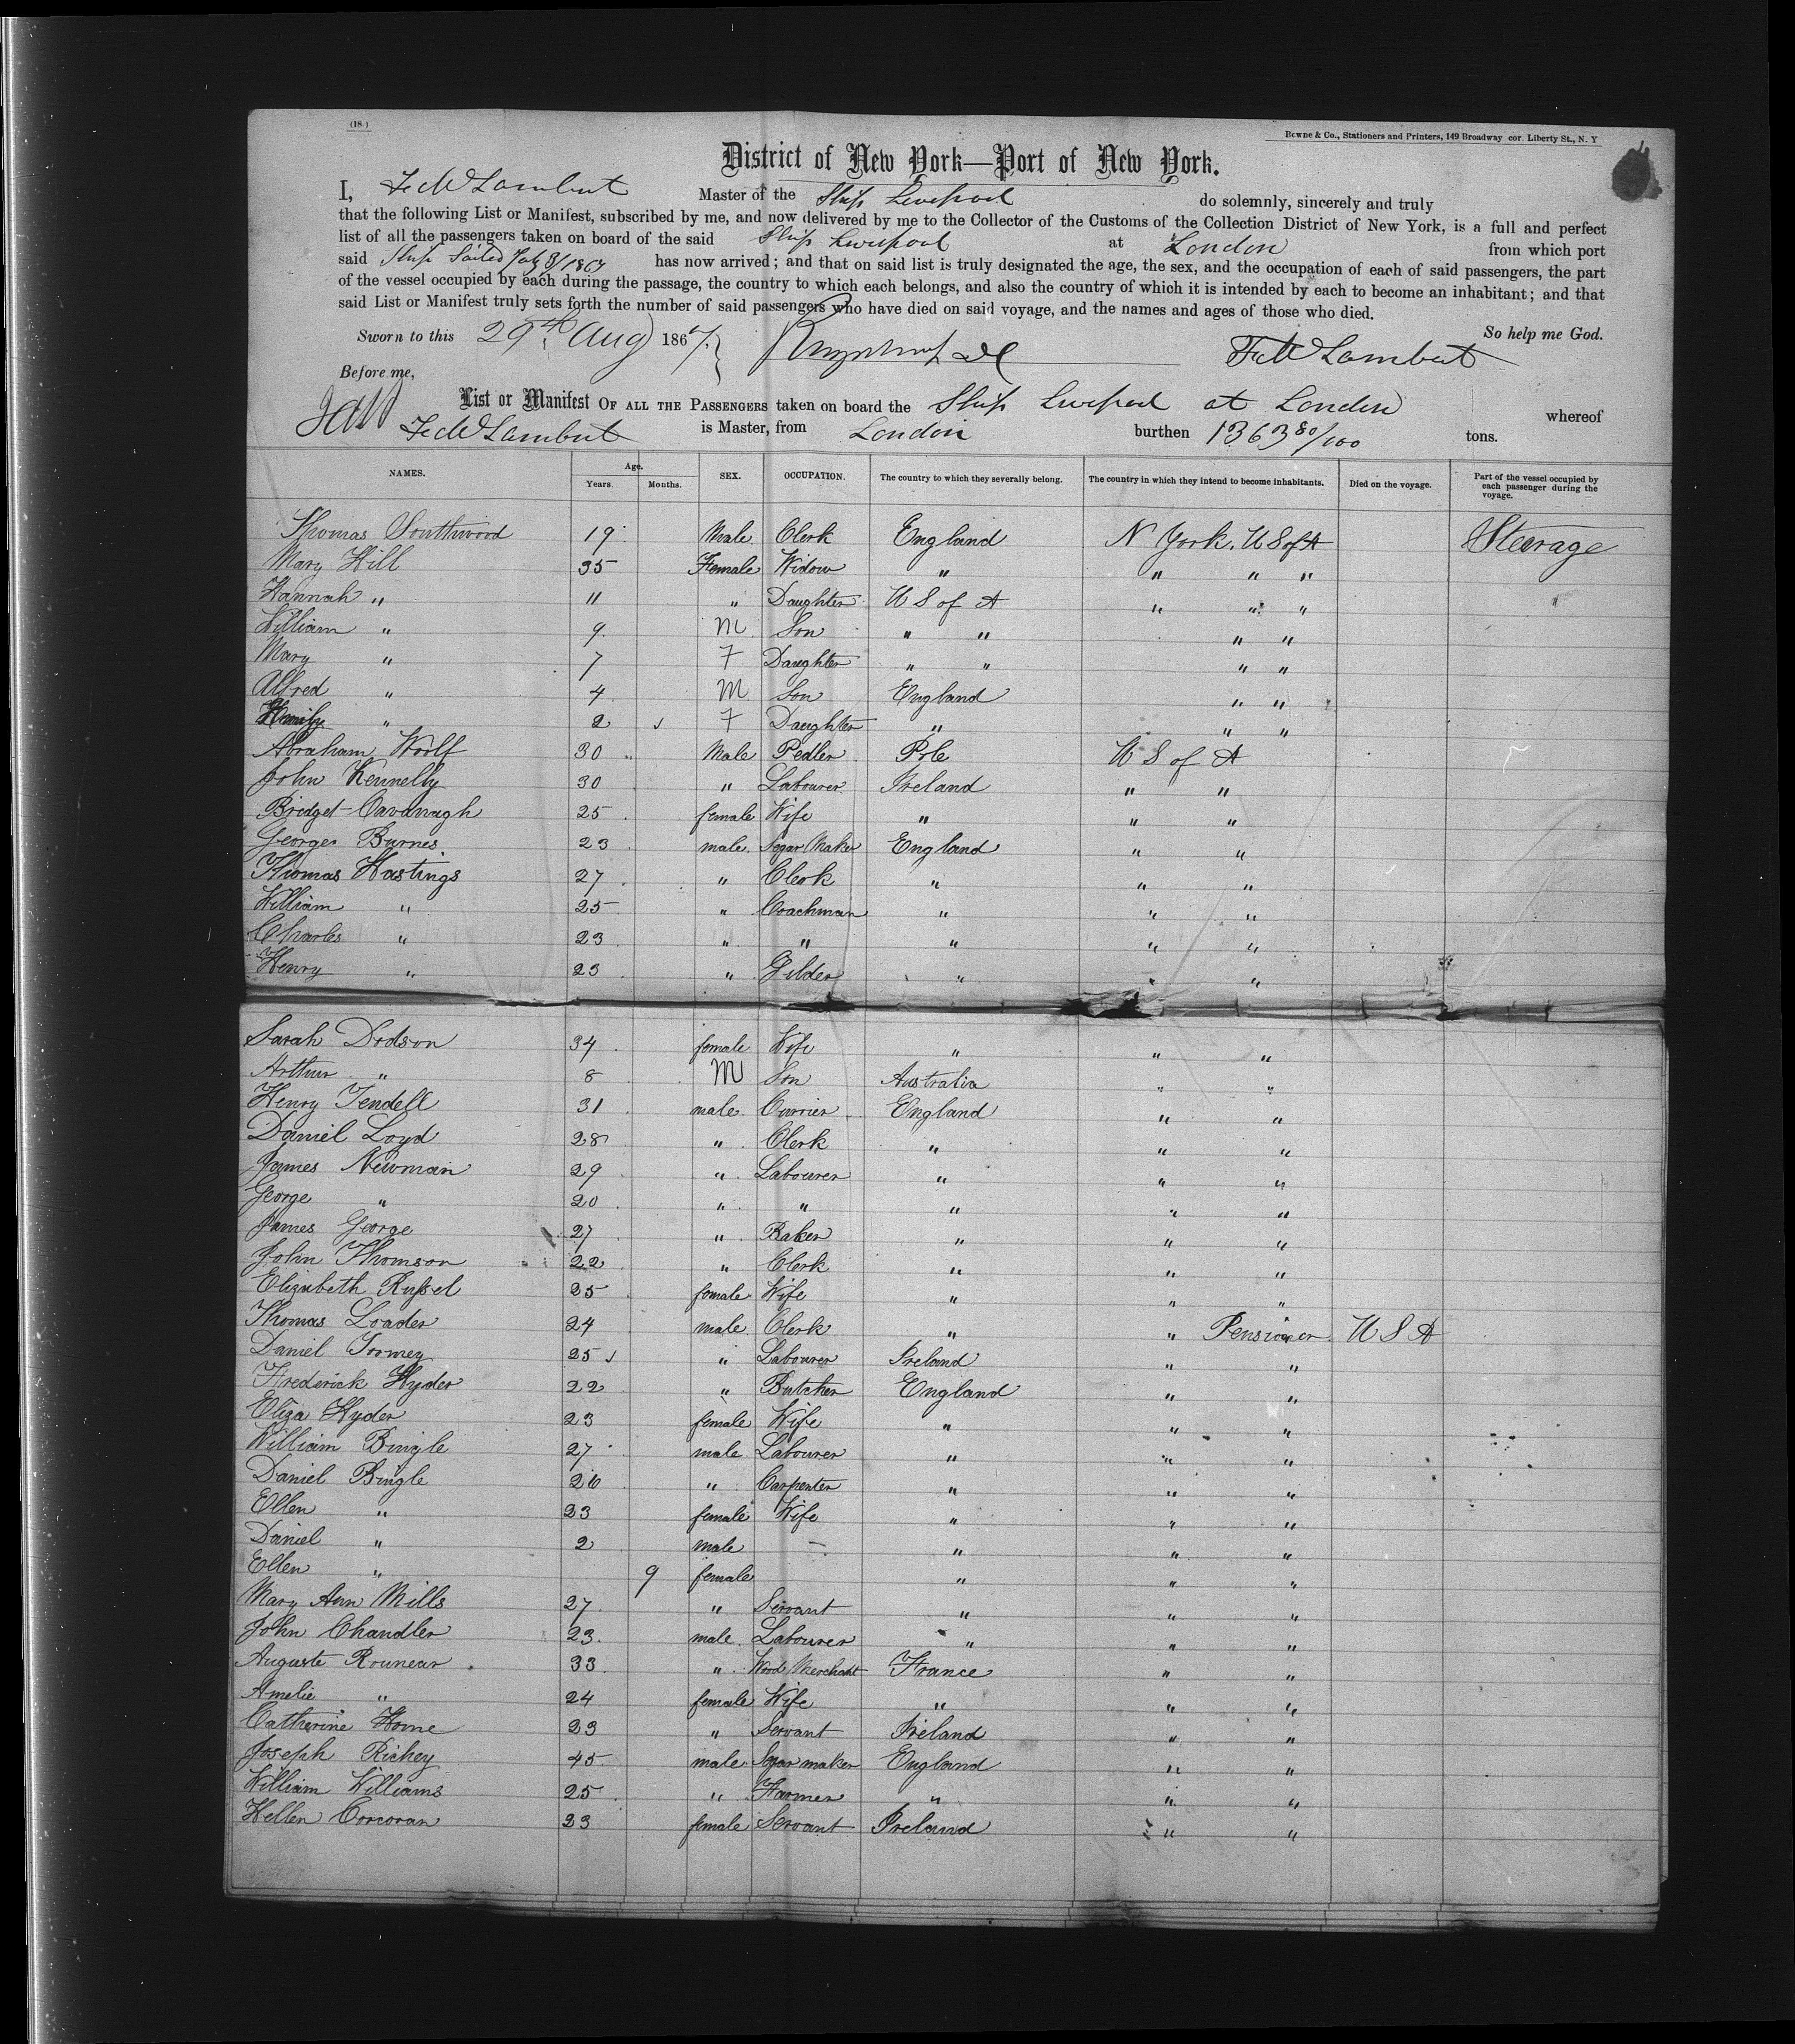 (18.)
Bowne & Co., Stationers and Printers, 149 Broadway cor. Liberty St., N. Y
District of New York—Port of New York.
I, F. W Lambert Master of the Ship Liverpool do solemnly, sincerely and truly
that the following List or Manifest, subscribed by me, and now delivered by me to the Collector of the Customs of the Collection District of New York, is a full and perfect
list of all the passengers taken on board of the said Ship Liverpool at London from which port
said Ship Sailed July 8/1867 has now arrived; and that on said list is truly designated the age, the sex, and the occupation of each of said passengers, the part
of the vessel occupied by each during the passage, the country to which each belongs, and also the country of which it is intended by each to become an inhabitant; and that
said List or Manifest truly sets forth the number of said passengers who have died on said voyage, and the names and ages of those who died.
Sworn to this 29th Aug 1867. So help me God.
Before me, Lambert
List or Manifest OF ALL THE PASSENGERS taken on board the Ship Liverpool at London whereof
Lambert is Master, from London burthen 1363 80/100 tons.
NAMES. Age. Years. Months. SEX. OCCUPATION. The country to which they severally belong. The country in which they intend to become inhabitants. Died on the voyage. Part of the vessel occupied by each passenger during the voyage.
Thomas Southwood 19 Male Clerk England N York. U S of A Steerage
Mary Hill 35 Female Widow " " " "
Hannah " 11 " Daughter U S of A " " "
William " 9 M Son " " " "
Mary " 7 F Daughter " " " "
Alfred " 4 M Son England " "
" 2 F Daughter " " "
Abraham Woolf 30 Male Pedler Pole U S of A
John Kennelly 30 " Labourer Ireland " "
Bridget Cavanagh 25 female Wife " " "
George Burnes 23 male Segar Maker England " "
Thomas Hastings 27 " Clerk " " "
William " 25 " Coachman " " "
Charles " 23 " " " " "
Henry " 23 " Gilder " " "
Sarah Dodson 34 female Wife " " "
Arthur " 8 M Son Australia " "
Henry Tendell 31 male Currier England " "
Daniel Loyd 28 " Clerk " " "
James Newman 29 " Labourer " " "
George " 20 " " " " "
James George 27 " Baker " " "
John Thomson 22 " Clerk " " "
Elizabeth Russel 25 female Wife " " "
Thomas Loader 24 male Clerk " " Pensioner U S A
Daniel Toomey 25 " Labourer Ireland " "
Frederick Hyder 22 " Butcher England " "
Eliza Hyder 23 female Wife " " "
William Bingle 27 male Labourer " " "
Daniel Bingle 26 " Carpenter " " "
Ellen " 23 female Wife " " "
Daniel " 2 male – " " "
Ellen " 9 female " " "
Mary Ann Mills 27 " Servant " " "
John Chandler 23 male Labourer " " "
Auguste Rounear 33 " Wood Merchant France " "
Amelie " 24 female Wife " " "
Catherine Horne 23 " Servant Ireland " "
Joseph Richey 45 male Segar maker England " "
William Williams 25 " Farmer " " "
Hellen Corcoran 23 female Servant Ireland " "